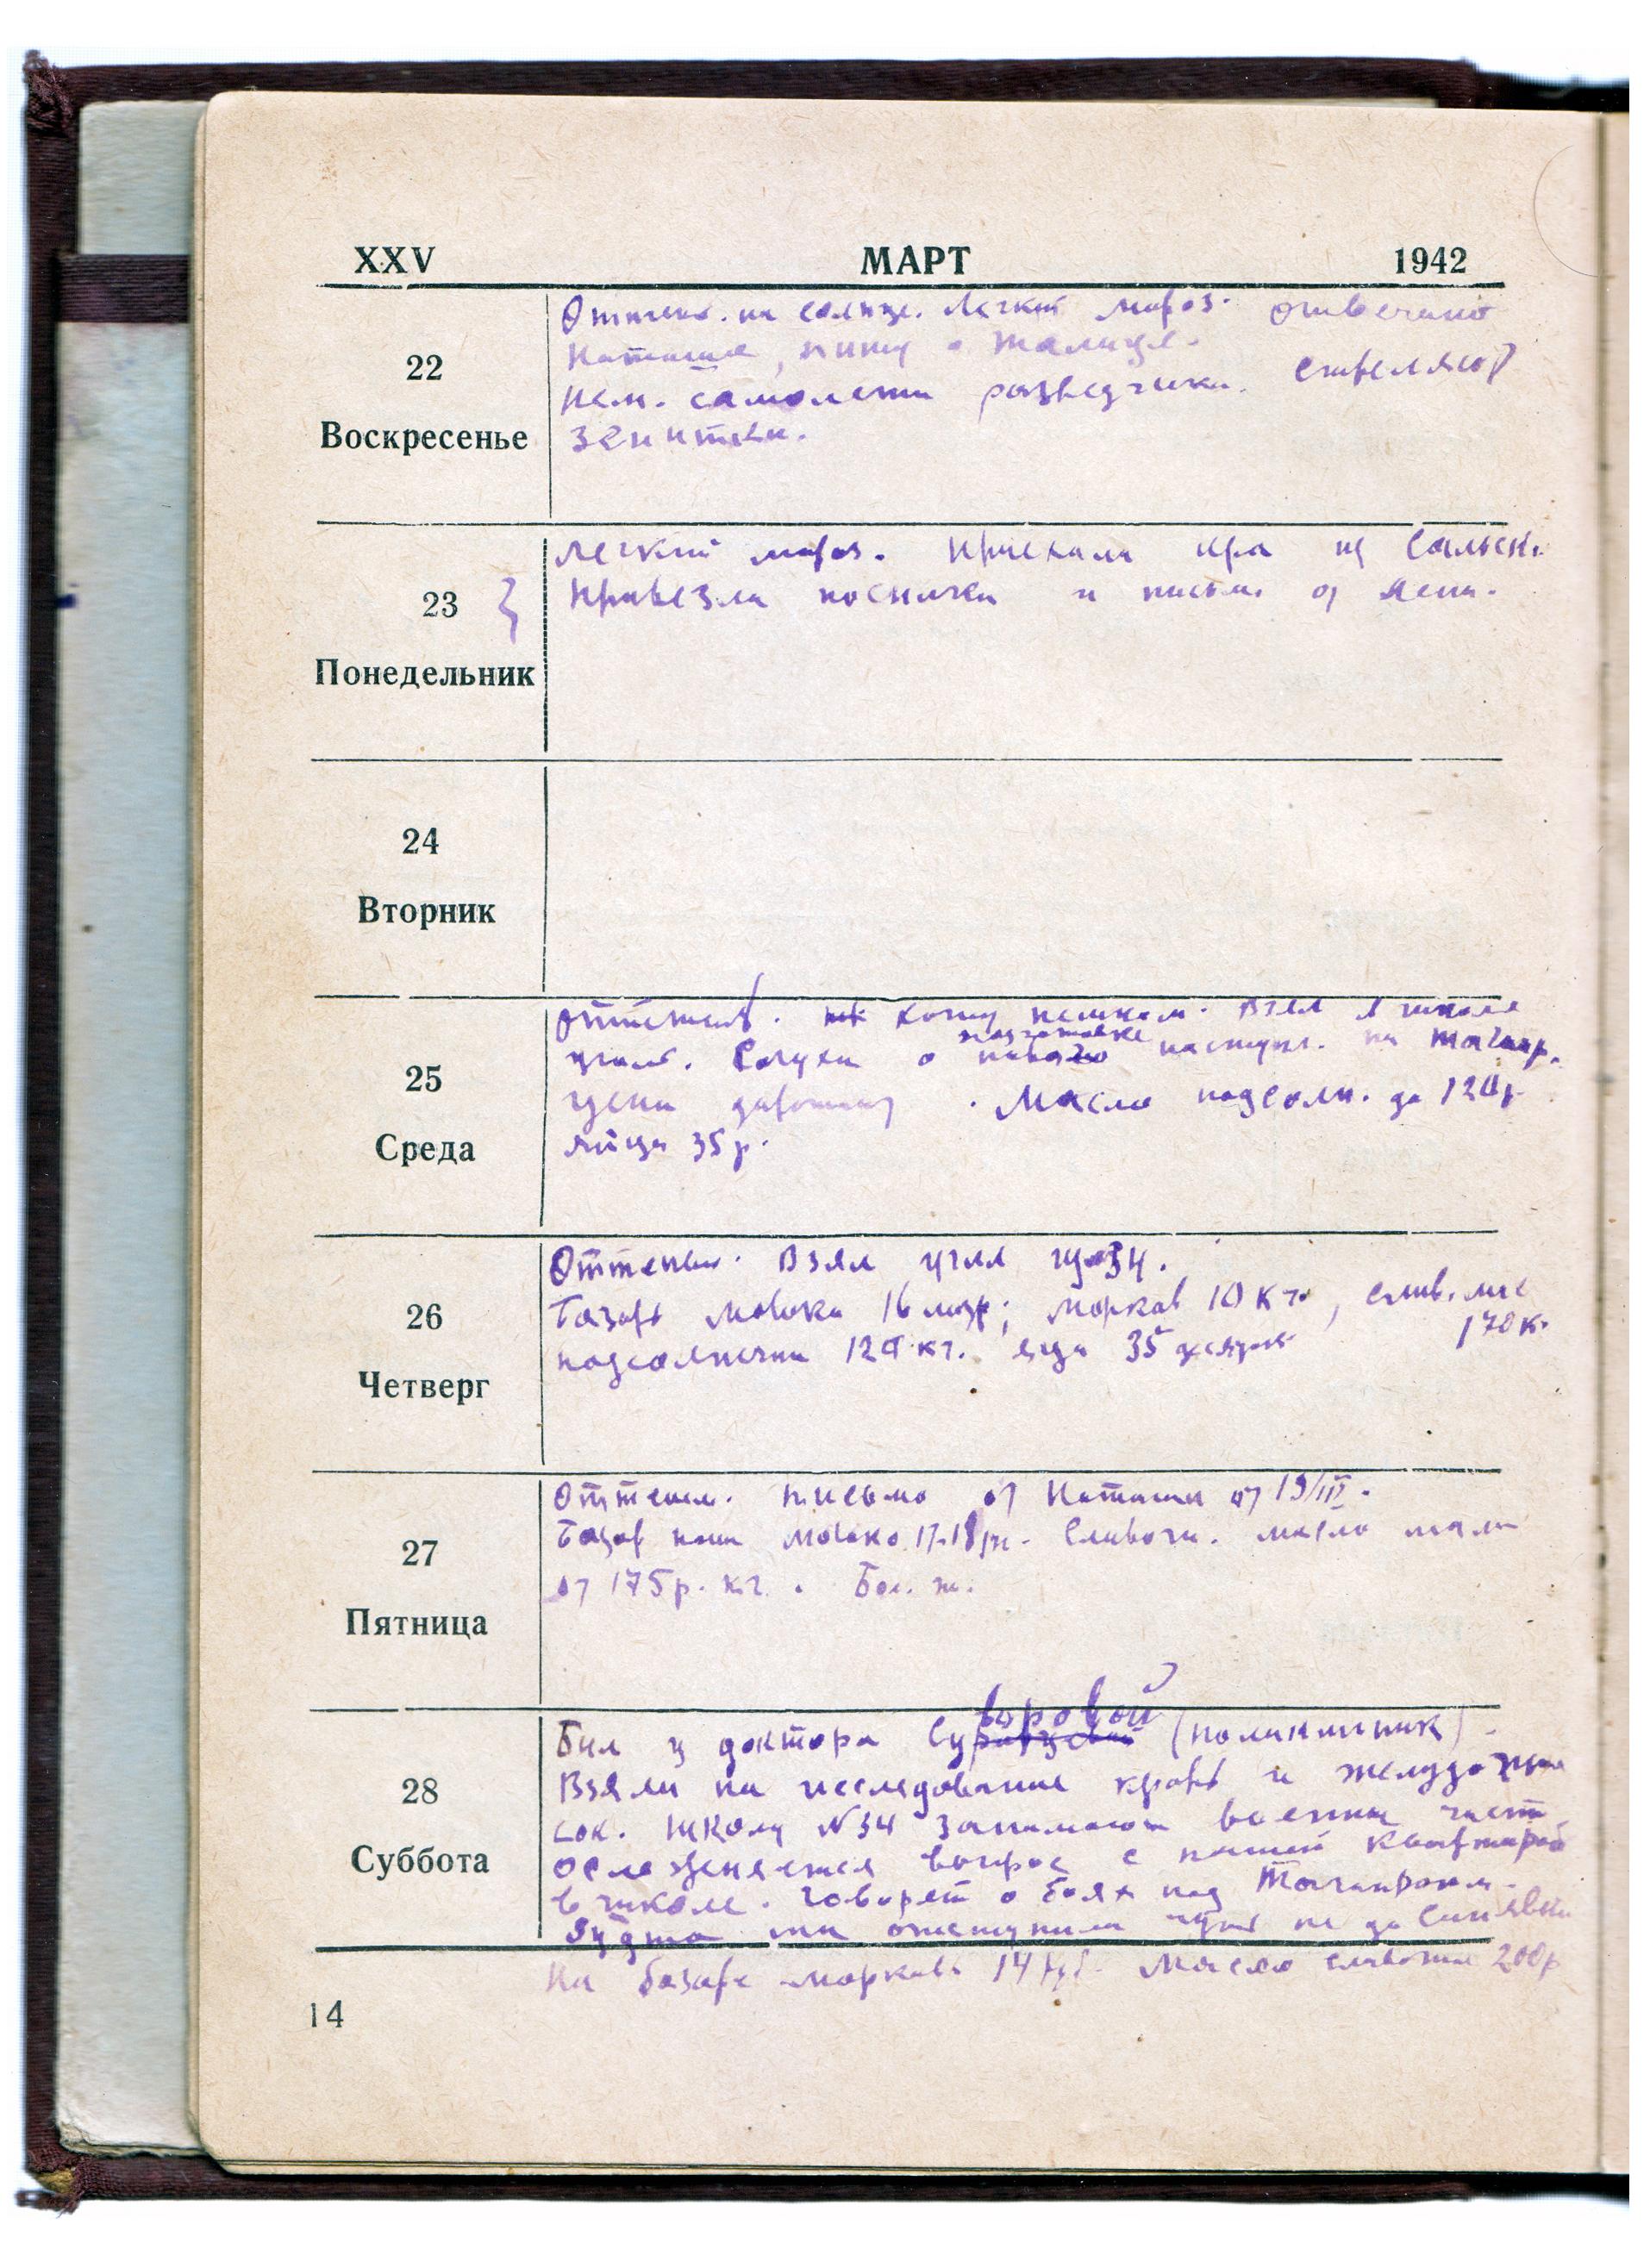 XXV МАРТ 1942
22
Воскресенье
Оттепел. на солнце. Легкий мороз. отвечаю
Наташе, пишу о
Нем. самолеты разведчики. стреляют
зенитки.
23
Понедельник
Легкий мороз. Приехала Ира из Сальск.
Привезла посылки и письм. от
24
Вторник
25
Среда
оттепель. Хожу пешком. Взял в школе
уголь. Слухи о подготовке наступл. на Таганр.
Цены Масло подсолн. до 120 р.
яйца 35 р.
26
Четверг
Оттепель. Взял угля 34.
Базар молоко 16 морков 10 кг, слив. мас
170 к.
подсолнечн 120 кг. яйца 35 десяток
27
Пятница
Оттепел. письмо от Наташи от 19/III.
Базар молоко 17-18 Сливочн. масло
от 175 р. кг. Бол. ж.
28
Суббота
воровой
Был у доктора Су (поликлиник).
Взяли на исследование кровь и желудочный
сок. Школу №34 занимают военны част
осложняется вопрос с нашей квартирой
в школе. Говорят о боях под Таганрогом.
Будто мы отступили чуть не до Синявки
На базаре морковь 14 руб. Масло сливочн 200 р
14